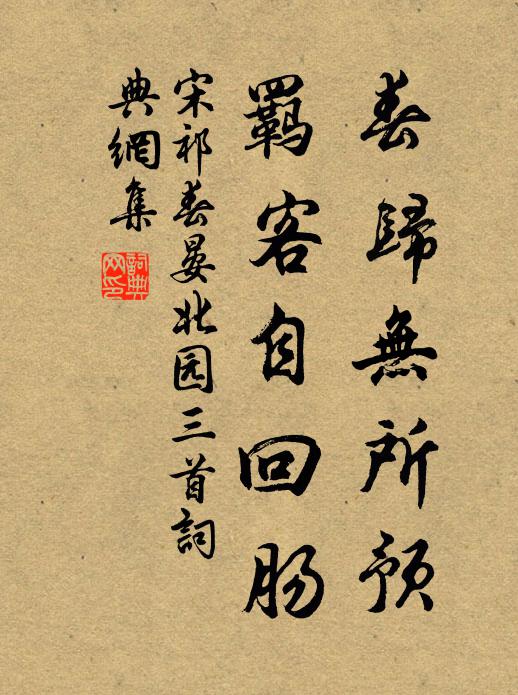 春歸無所預
羈客自回腸
宋祁春晏北园三首詞
典網集
詞典網印